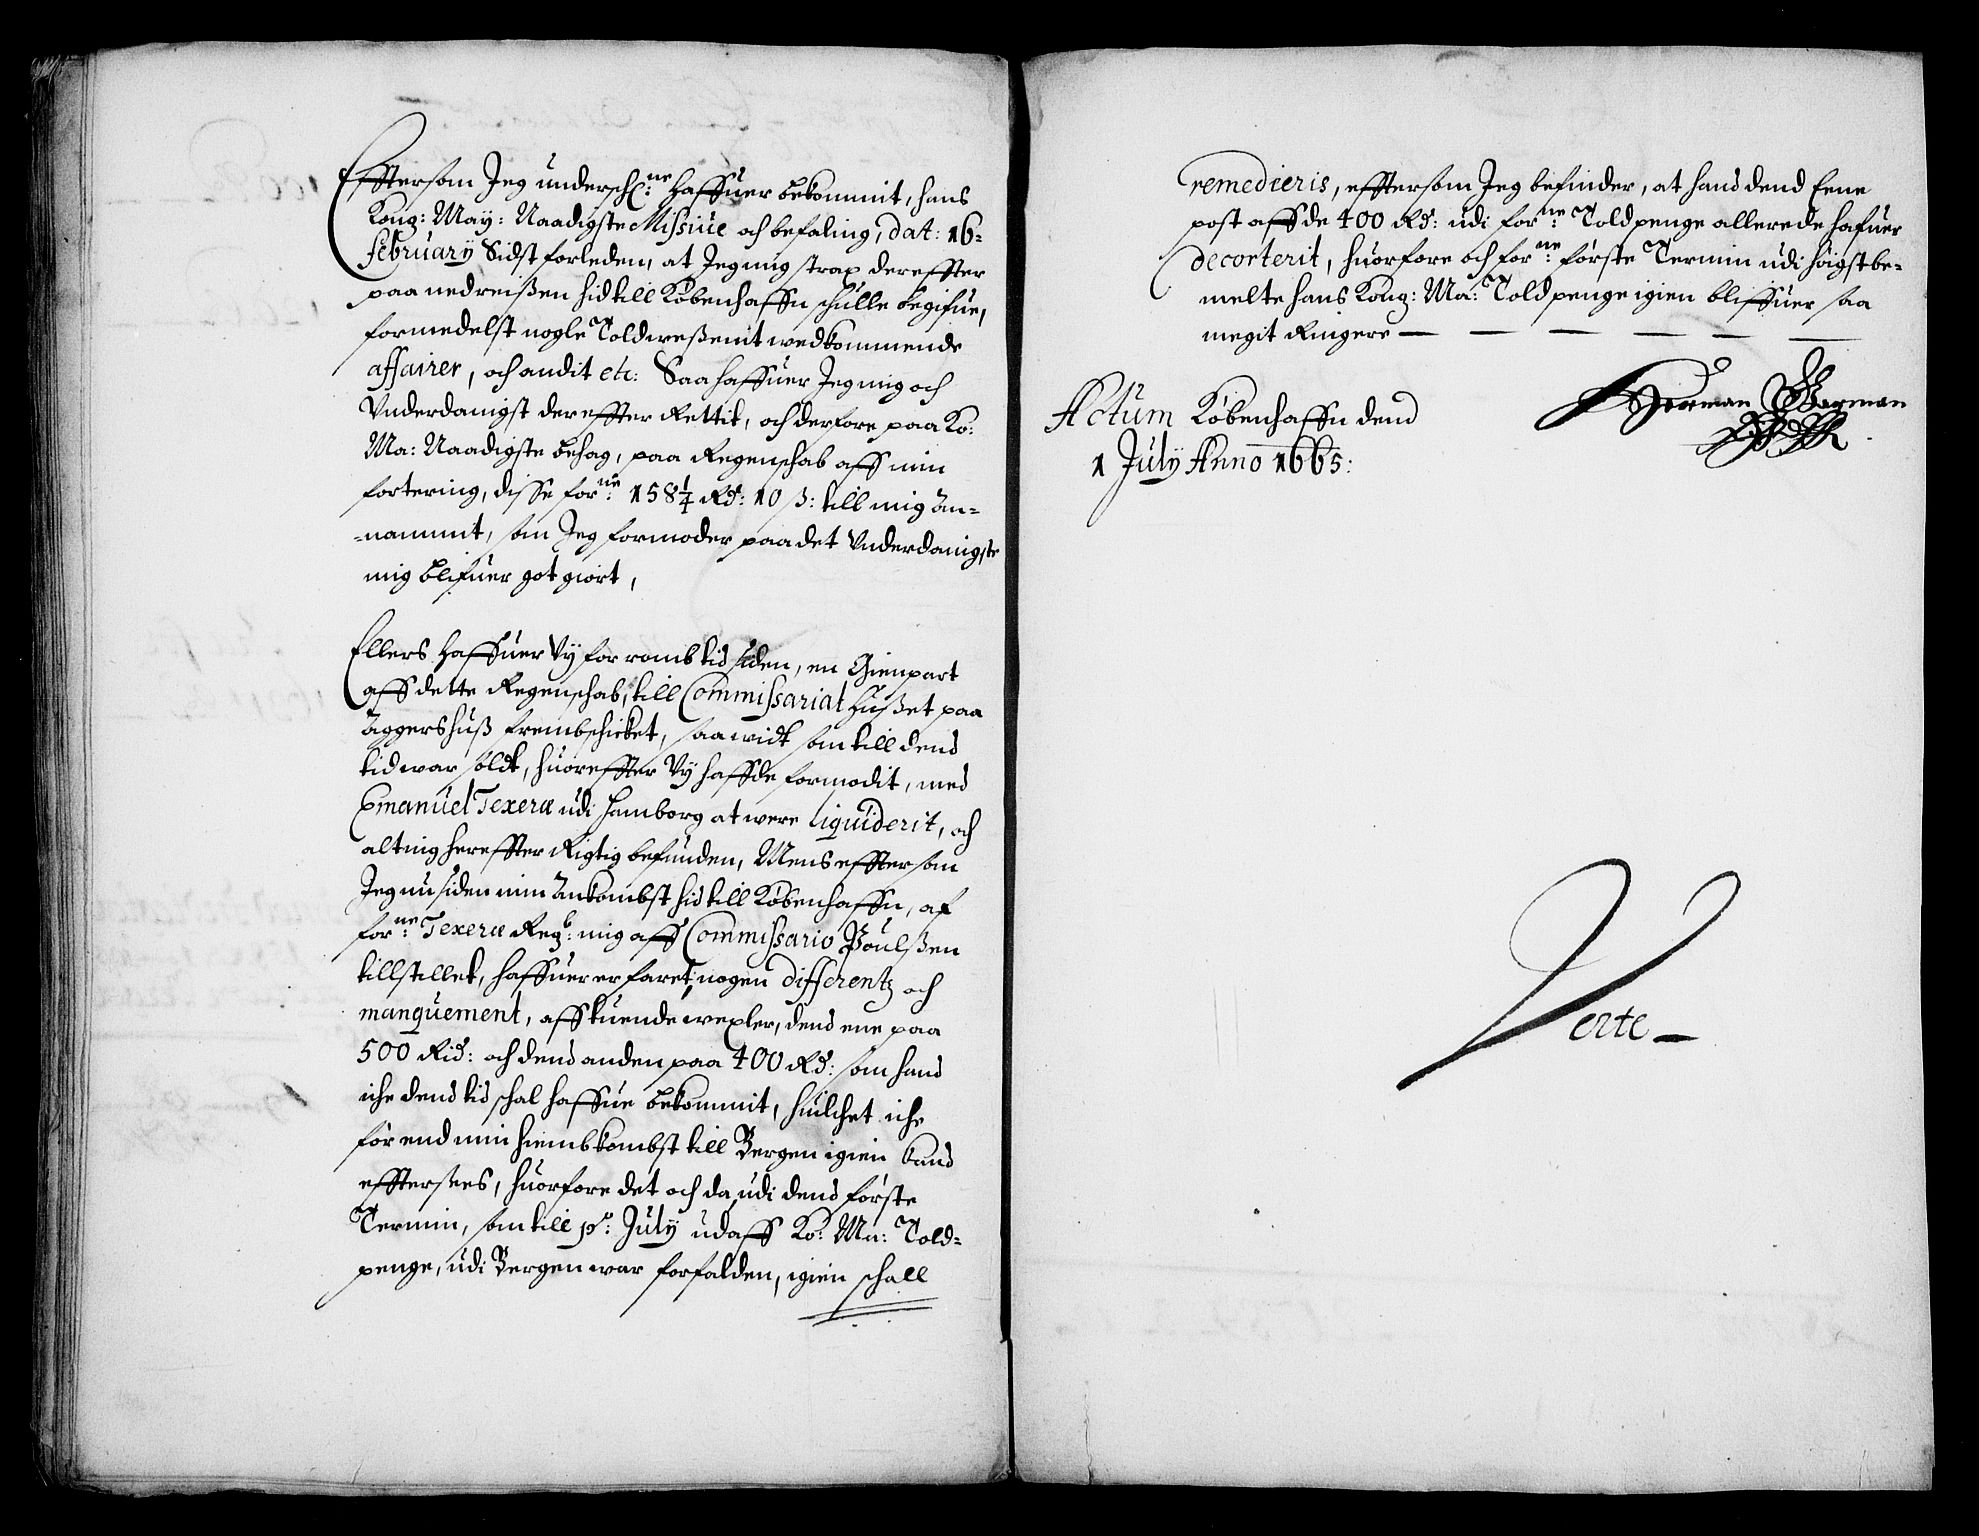 Efftersom Jeg undersch:ne Haffuer bekommit, hans
Kong: May: Naadigste Missiue och befaling, dat: 16-
february Sidst forleden, at Jeg mig strax dereffter
paa nedreißen hid till Kiøbenhaffn schulle begifue,
formedelst nogle Toldweßenit wedkommende
affairer, och andit etc: Saa haffuer Jeg mig och
Vnderdanigst dereffter Rettit, och derfore paa Ko:
Ma: Naadigste behag, paa Regenschab aff min
fortering, disse for:ne 158¼ Rd: 10 ß: till mig an-
-nammit, som Jeg formoder paa det Vnderdanigste
mig blifuer got giort,
Ellers Haffuer Vy for romb tid siden, en Gienpart
aff dette Regenschab, till Commissariat Hußet paa
Aggershuß frembschicket, saa widt som till dend
tid war soldt, huoreffter Vy haffde formodit, med
Emanuel Texera udi Hamborg at were liquiderit, och
alting hereffter Rigtig befunden, Mens efftersom
Jeg nu siden min Ankombst hid till Kiøbenhaffn, af
for:ne Texera Reg: mig aff Commissario Poulßen
tillstillet, haffuer erfaret, nogen differentz och
manquement, aff tuende wexler, dend ene paa
500 Rid: och dend anden paa 400 Rd: som hand
iche dend tid schal haffue bekommit, huilchet iche
før end min hiembkombst till Bergen igien kand
efftersees, huorfore det och da, udi dend første
Termin, som till po: July udaff Ko: Ma: Told-
penge, udi Bergen war forfalden, igien schall
remedieris, efftersom Jeg befinder, at hand dend Eene
post aff de 400 Rd: udi for:ne Toldpenge allerede hafuer
decorterit, huorfore och for:ne første Termin udi høigstbe-
melte hans Kong: Ma: Toldpenge igien bliffuer saa
megit Ringere — — — — — —
Actum Kiøbenhaffn dend
1 July Anno 1665:
Herman Garman
Verte —